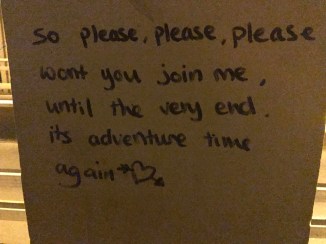 So please, please, please
wont you join me,
until the very end.
its adventure time
again